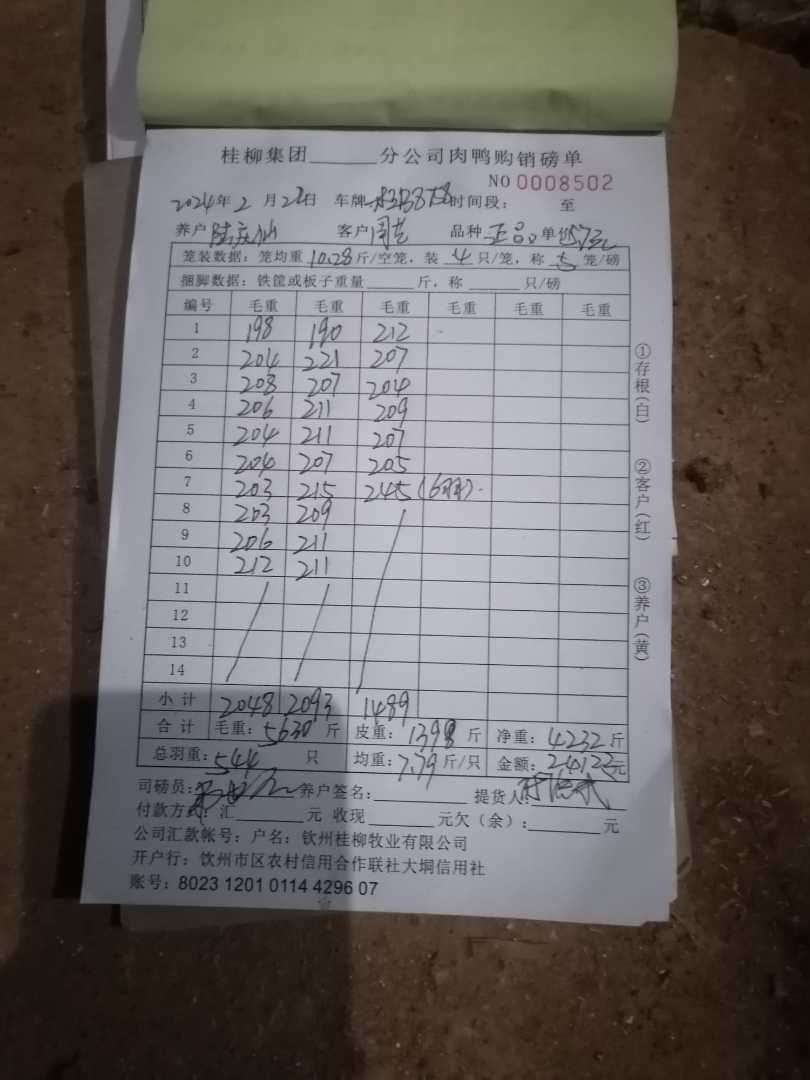 桂柳集团______分公司肉鸭购销磅单
NO 0008502
2024年2月23日 车牌 时间段： 至
养户 客户 品种 正品 单价 5.7元
笼装数据：笼均重 10.28 斤/空笼，装 4 只/笼，称 笼/磅
捆脚数据：铁筐或板子重量______斤，称______只/磅
编号 毛重 毛重 毛重 毛重 毛重 毛重
1 198 190 212
2 204 221 207
3 208 207 204
4 206 211 209
5 204 211 207
6 204 207 205
7 203 215 245 (6羽)
8 203 209
9 206 211
10 212 211
11
12
13
14
小计 2048 2093 1489
合计 毛重：5630 斤 皮重：1398 斤 净重：4232 斤
总羽重：544 只 均重：7.79 斤/只 金额：24122元
司磅员： 养户签名：______ 提货人：
付款方式：汇______元 收现______元欠（余）：______元
公司汇款帐号：户名：钦州桂柳牧业有限公司
开户行：钦州市区农村信用合作联社大垌信用社
账号：8023 1201 0114 4296 07
①存根（白）
②客户（红）
③养户（黄）